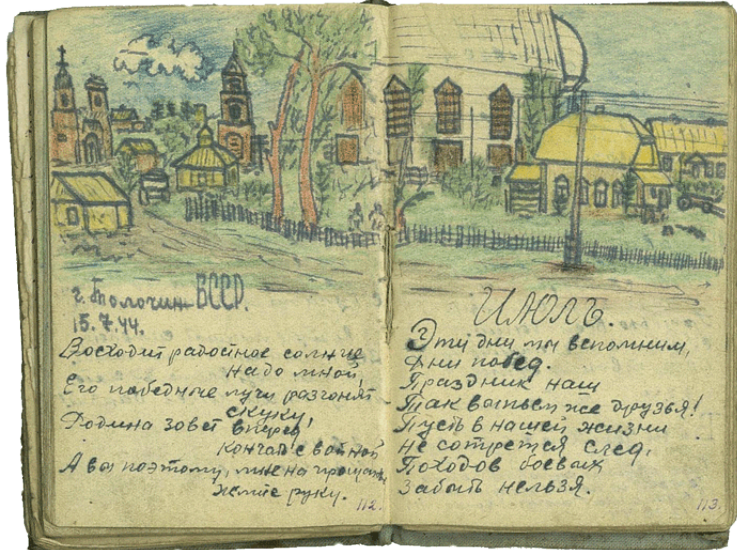 г. Толочин БССР.
15.7.44.
Восходит радостное солнце
надо мной,
Его победные лучи разгонят
скуку!
Родина зовет вперед,
Кончать с войной
А вы поэтому, мне на прощанье
жмите руку.
112.
Июль.
Эти дни мы вспомним,
Дни побед.
Праздник наш
Так выпьем же друзья!
Пусть в нашей жизни
не сотрется след,
Походов боевых
Забыть нельзя.
113.